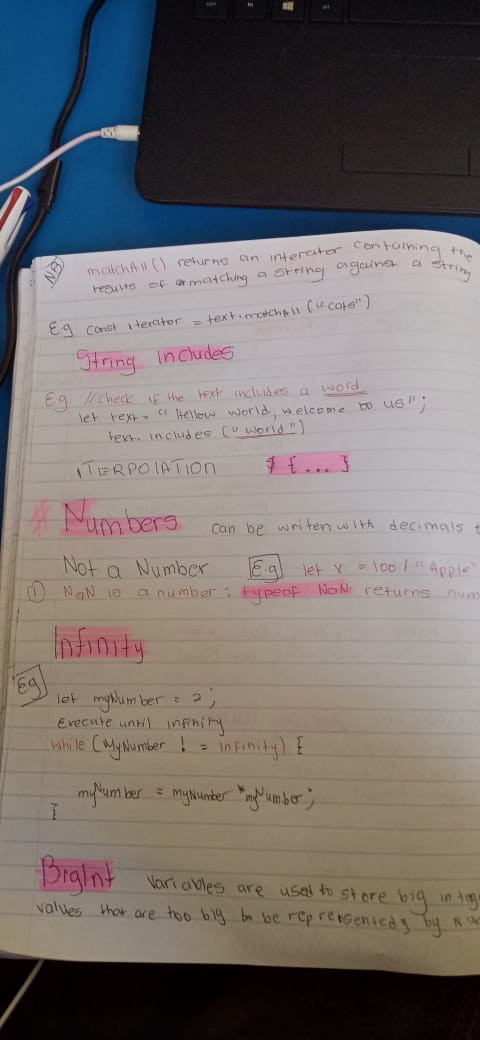 NB matchAll() returns an interator containing the
results of matching a string against a string
E.g const iterator = text.matchAll("cats")
String Includes
Eg //Check if the text includes a word
let text = "Hellow world, welcome to us";
text.includes("world")
ITERPOlATION ${...}
# Numbers can be writen with decimals
Not a Number E.g let x = 100 / "Apple"
① NaN is a number : typeof NaN returns num
Infinity
Eg
let myNumber = 2;
Execute until infinity
while (MyNumber != Infinity) {
myNumber = myNumber * myNumber;
}
BigInt variables are used to store big integ
values that are too big to be represented by